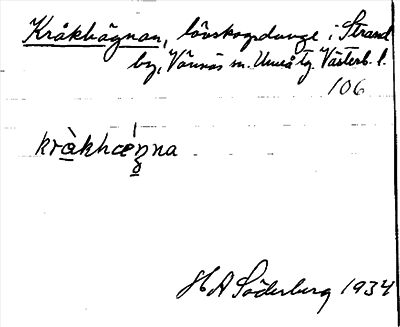 Kråkhägnan, lövskogsdunge i Strand
by, Vännäs sn. Umeå tg. Västerb. l.
106
kràkhæ̀ŋna
H A Söderberg 1934